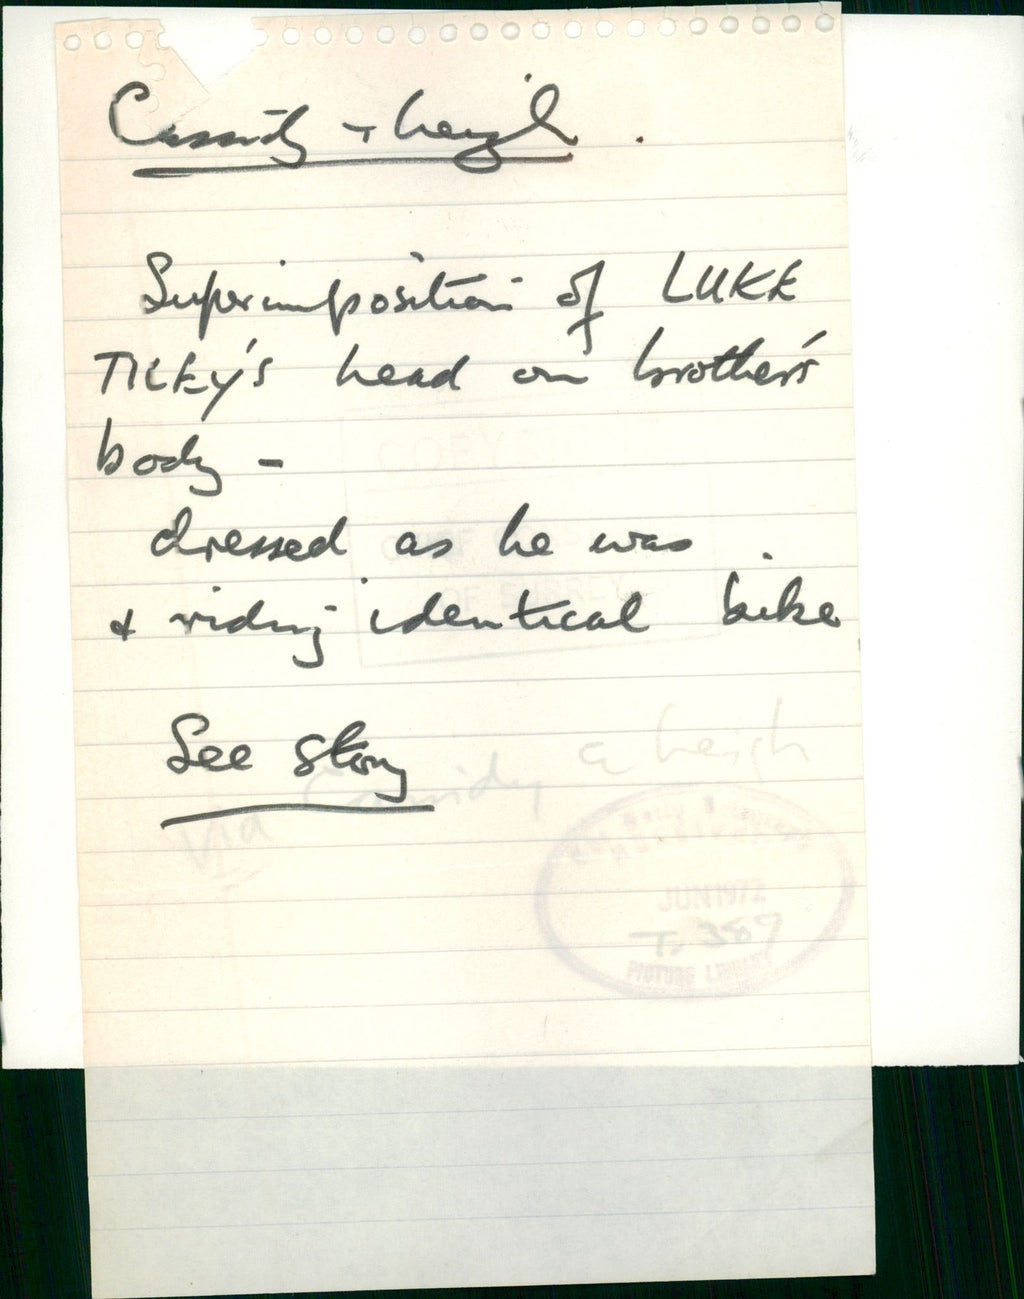 Cassidy + Leigh.
Superimposition of LUKE
TILEY'S head on brother's
body -
dressed as he was.
+ riding identical bike
See story
Via Cassidy & Leigh
COPY
OF SURREY
JUN 1972
PICTURE LIBRARY